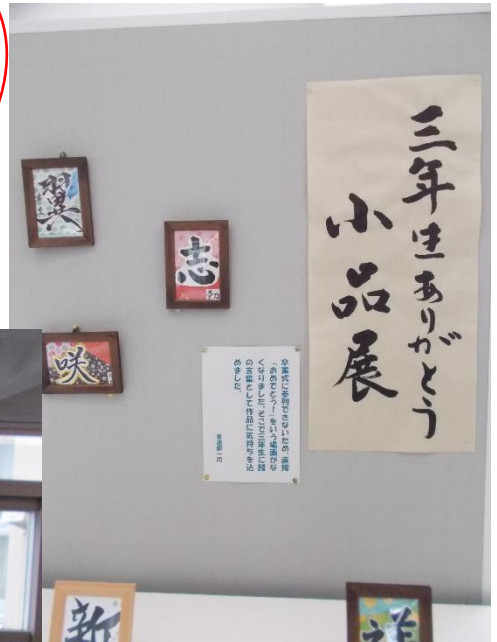 三年生ありがとう
小品展
翼
志
咲
卒業式に参列できないため、直接
「おめでとう！」をいう場面がな
くなりました。そこで三年生に贈
る言葉として作品に気持ちを込
めました。
書道部一同
新